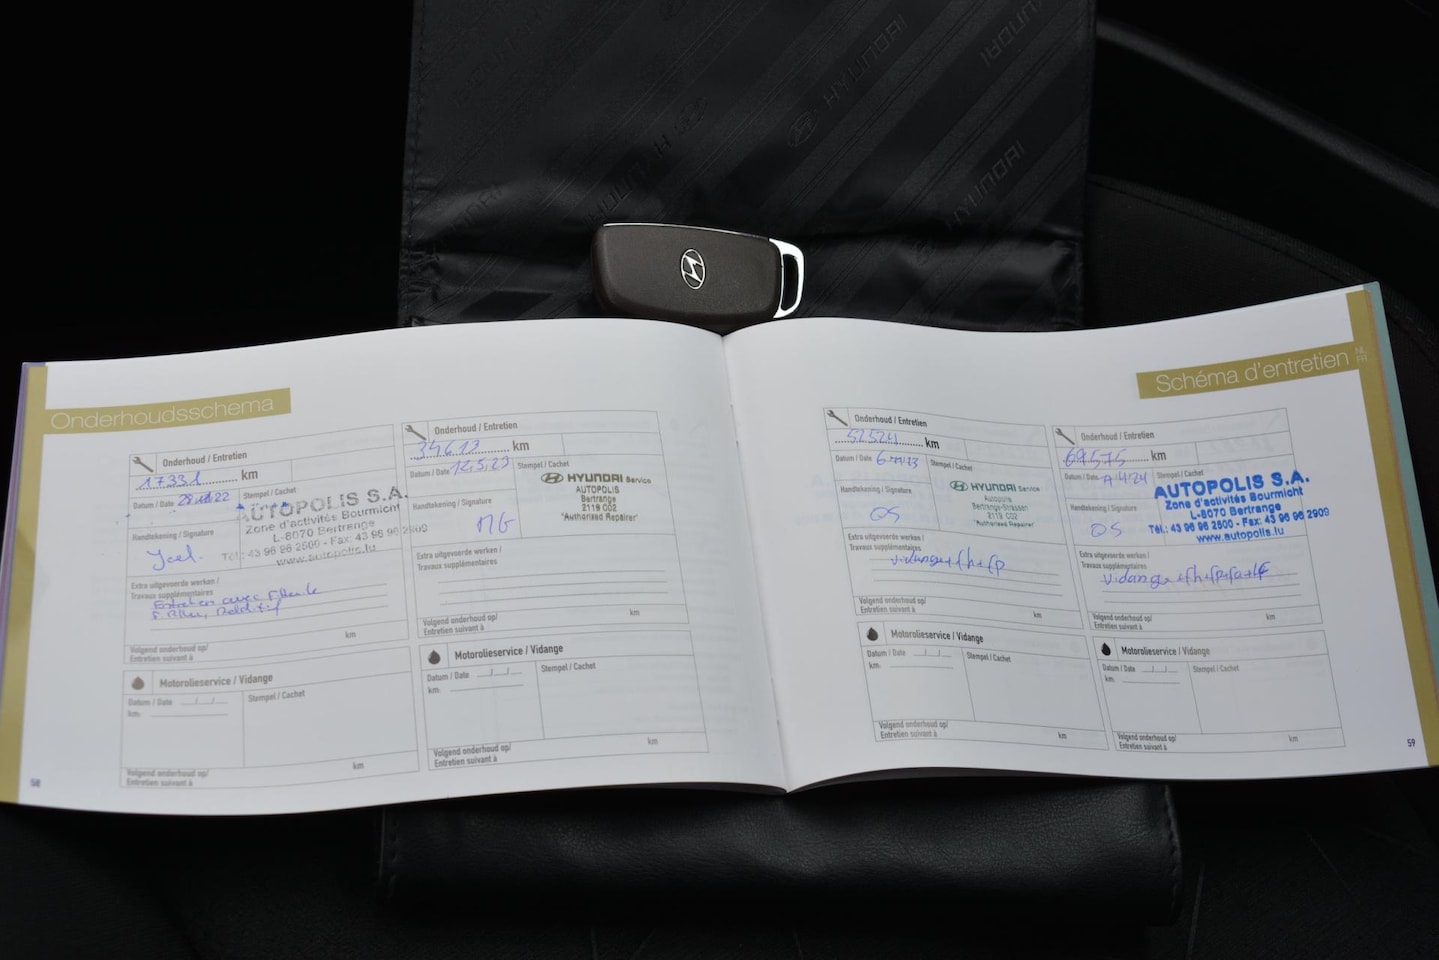 HYUNDAI
HYUNDAI
HYUNDAI
HYUNDAI
Onderhoudsschema
Onderhoud / Entretien
17331 km
Datum / Date 22
Stempel / Cachet
AUTOPOLIS S.A.
Zone d'activités Bourmicht
L-8070 Bertrange
Tél.: 43 96 96 2500 - Fax: 43 96 96 2909
www.autopolis.lu
Handtekening / Signature
Extra uitgevoerde werken /
Travaux supplémentaires
Entretien avec
Volgend onderhoud op/
Entretien suivant à
km
Motorolieservice / Vidange
Datum / Date
km:
Stempel / Cachet
Volgend onderhoud op/
Entretien suivant à
km
Onderhoud / Entretien
34612 km
Datum / Date 12.5.23
Stempel / Cachet
HYUNDAI Service
AUTOPOLIS
Bertrange
2119 C02
"Authorised Repairer"
Handtekening / Signature
MG
Extra uitgevoerde werken /
Travaux supplémentaires
Volgend onderhoud op/
Entretien suivant à
km
Motorolieservice / Vidange
Datum / Date
km:
Stempel / Cachet
Volgend onderhoud op/
Entretien suivant à
km
58
Schéma d'entretien
NL
FR
Onderhoud / Entretien
52524 km
Datum / Date
Stempel / Cachet
HYUNDAI Service
Autopolis
Bertrange-Strassen
2119 C02
"Authorised Repairer"
Handtekening / Signature
OS
Extra uitgevoerde werken /
Travaux supplémentaires
vidange+fh+fp
Volgend onderhoud op/
Entretien suivant à
km
Motorolieservice / Vidange
Datum / Date
km:
Stempel / Cachet
Volgend onderhoud op/
Entretien suivant à
km
Onderhoud / Entretien
69575 km
Datum / Date
Stempel / Cachet
AUTOPOLIS S.A.
Zone d'activités Bourmicht
L-8070 Bertrange
Tél.: 43 96 96 2500 - Fax: 43 96 96 2909
www.autopolis.lu
Handtekening / Signature
OS
Extra uitgevoerde werken /
Travaux supplémentaires
Volgend onderhoud op/
Entretien suivant à
km
Motorolieservice / Vidange
Datum / Date
km:
Stempel / Cachet
Volgend onderhoud op/
Entretien suivant à
km
59